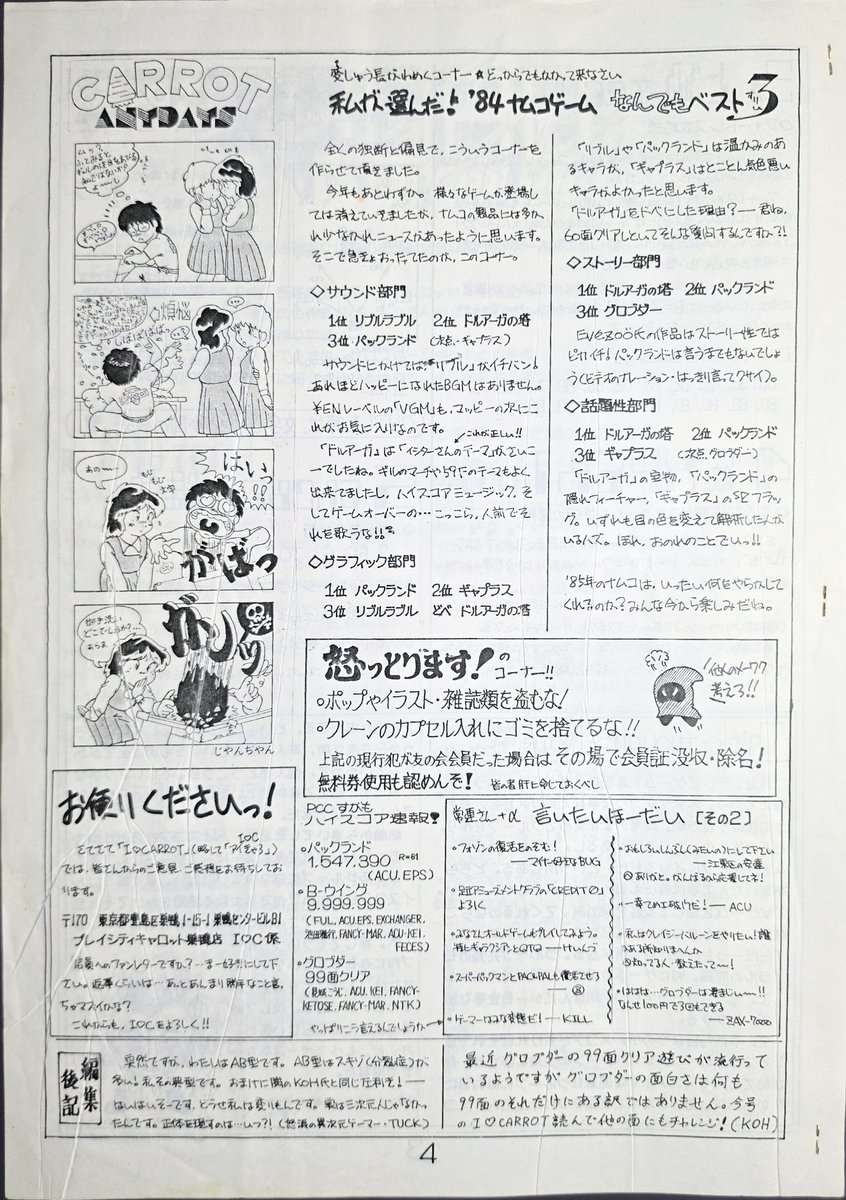 CARROT
ANYDAYS
あの〜
はいっ!!
がばっ
煩悩
じゃんちゃん
どっからでもかかって来なさい
私が選んだ! '84 ナムコゲーム なんでもベスト3
全くの独断と偏見で、こういうコーナーを
作らせて頂きました。
今年もあとわずか。様々なゲームが登場し
ては消えていきましたが、ナムコの製品には多か
れ少なかれニュースがあったように思います。
そこで急きょおったてたのが、このコーナー。
◇サウンド部門
1位 リブルラブル 2位 ドルアーガの塔
3位 パックランド (次点・ギャプラス)
サウンドにかけては「リブル」がイチバン!
あれほどハッピーになれたBGMはありません。
¥ENレーベルの「VGM」も、マッピーの次にこ
れがお気に入りなのです。
これが正しい!!
「ドルアーガ」は「イシターさんのテーマ」がさいこ
ーでしたね。ギルのマーチや59Fのテーマもよく
出来てましたし、ハイスコアミュージック、そ
してゲームオーバーの…こっこら、人前でそ
れを歌うな!!
◇グラフィック部門
1位 パックランド 2位 ギャプラス
3位 リブルラブル どべ ドルアーガの塔
「リブル」や「パックランド」は温かみのあ
るキャラが、「ギャプラス」はとことん気色悪い
キャラがよかったと思います。
「ドルアーガ」をドベにした理由?― 君ね、
60面クリアしといてそんな質問するんですか?!
◇ストーリー部門
1位 ドルアーガの塔 2位 パックランド
3位 グロブダー
EVEZOOKの作品はストーリー性では
ピカイチ! パックランドは言うまでもないでしょ
う(ビデオのナレーション・はっきり言ってクサイ)。
◇話題性部門
1位 ドルアーガの塔 2位 パックランド
3位 ギャプラス (次点 グロブダー)
「ドルアーガ」の宝物、「パックランド」の
隠れフィーチャー、「ギャプラス」のSPフラッ
グ。いずれも目の色を変えて解析した人が
いるハズ。ほれ、おのれのことでいっ!!
'85年のナムコは、いったい何をやらかして
くれるのか? みんな今から楽しみだね。
怒っとります!のコーナー!!
○ポップやイラスト・雑誌類を盗むな!
○クレーンのカプセル入れにゴミを捨てるな!!
上記の現行犯が友の会会員だった場合は その場で会員証没収・除名!
無料券使用も認めんぞ! 皆の者肝に命じておくべし
他人のメーワク
考えろ!!
お便りくださいっ!
I♡C
さてさて「I♡CARROT」(略して「アイきゃろ」)
では、皆さんからのご意見、ご感想をお待ちしてお
ります。
〒170 東京都豊島区巣鴨1-15-1 巣鴨センタービルB1
プレイシティキャロット巣鴨店 I♡C係
店員へのファンレターですか?…まー好きにして下
さい。返事くらいは…あとあんまり勝手なこと言
ちゃマズイかな?
これからも、I♡Cをよろしく!!
PCC すがも
ハイスコア速報!
・パックランド
1,547,390 R=61
(ACU.EPS)
・B-ウイング
9,999,999
(FUL, ACU.EPS, EXCHANGER,
池田雅行, FANCY-MAR, ACU-KEI,
FECES)
・グロブダー
99面クリア
(見城こうじ, ACU, KEI, FANCY-
KETOSE, FANCY-MAR, NTK)
やっぱりこう言えるんでしょうか
常連さん+α 言いたいほーだい [その2]
・フォゾンの復活をのぞむ!
―マイナー好きなBUG
・足立アミューズメントクラブの「CREDIT 0」
よろしく
・みなさんオールドゲームもプレイしてみよう。
特にギャラクシアンとQTQ ―けんつ
・スーパーパックマンとPAC&PALも復活させろ
・ゲーマーはみな変態だ! ―KILL
・おもしろいしんぶん(みたいの)にして下さい
―江東区の安達
ありがと。がんばるから応援してネ!
・一幸てめエ破門だ! ―ACU
・私はクレイジーバルーンをやりたい! 誰か
ある所知りませんか
知ってる人、教えたって〜!
・ははは…グロブダーは凄まじい〜!!
なんせ100円で3回もできる
―ZAX-7000
編集後記
突然ですが、わたしはAB型です。AB型はスキゾ(分裂症)が
多い! 私その典型です。おまけに隣のKOH氏と同じ左利き!―
はいはいそーです、どうせ私は変りもんです。実は三次元人じゃなかっ
たんです。正体を現すのは…いつ?! (怒涛の異次元ゲーマー・TUCK)
最近グロブダーの99面クリア遊びが流行って
いるようですがグロブダーの面白さは何も
99面のそれだけにある訳ではありません。今号
の I♡CARROT 読んで他の面にもチャレンジ! (KOH)
4